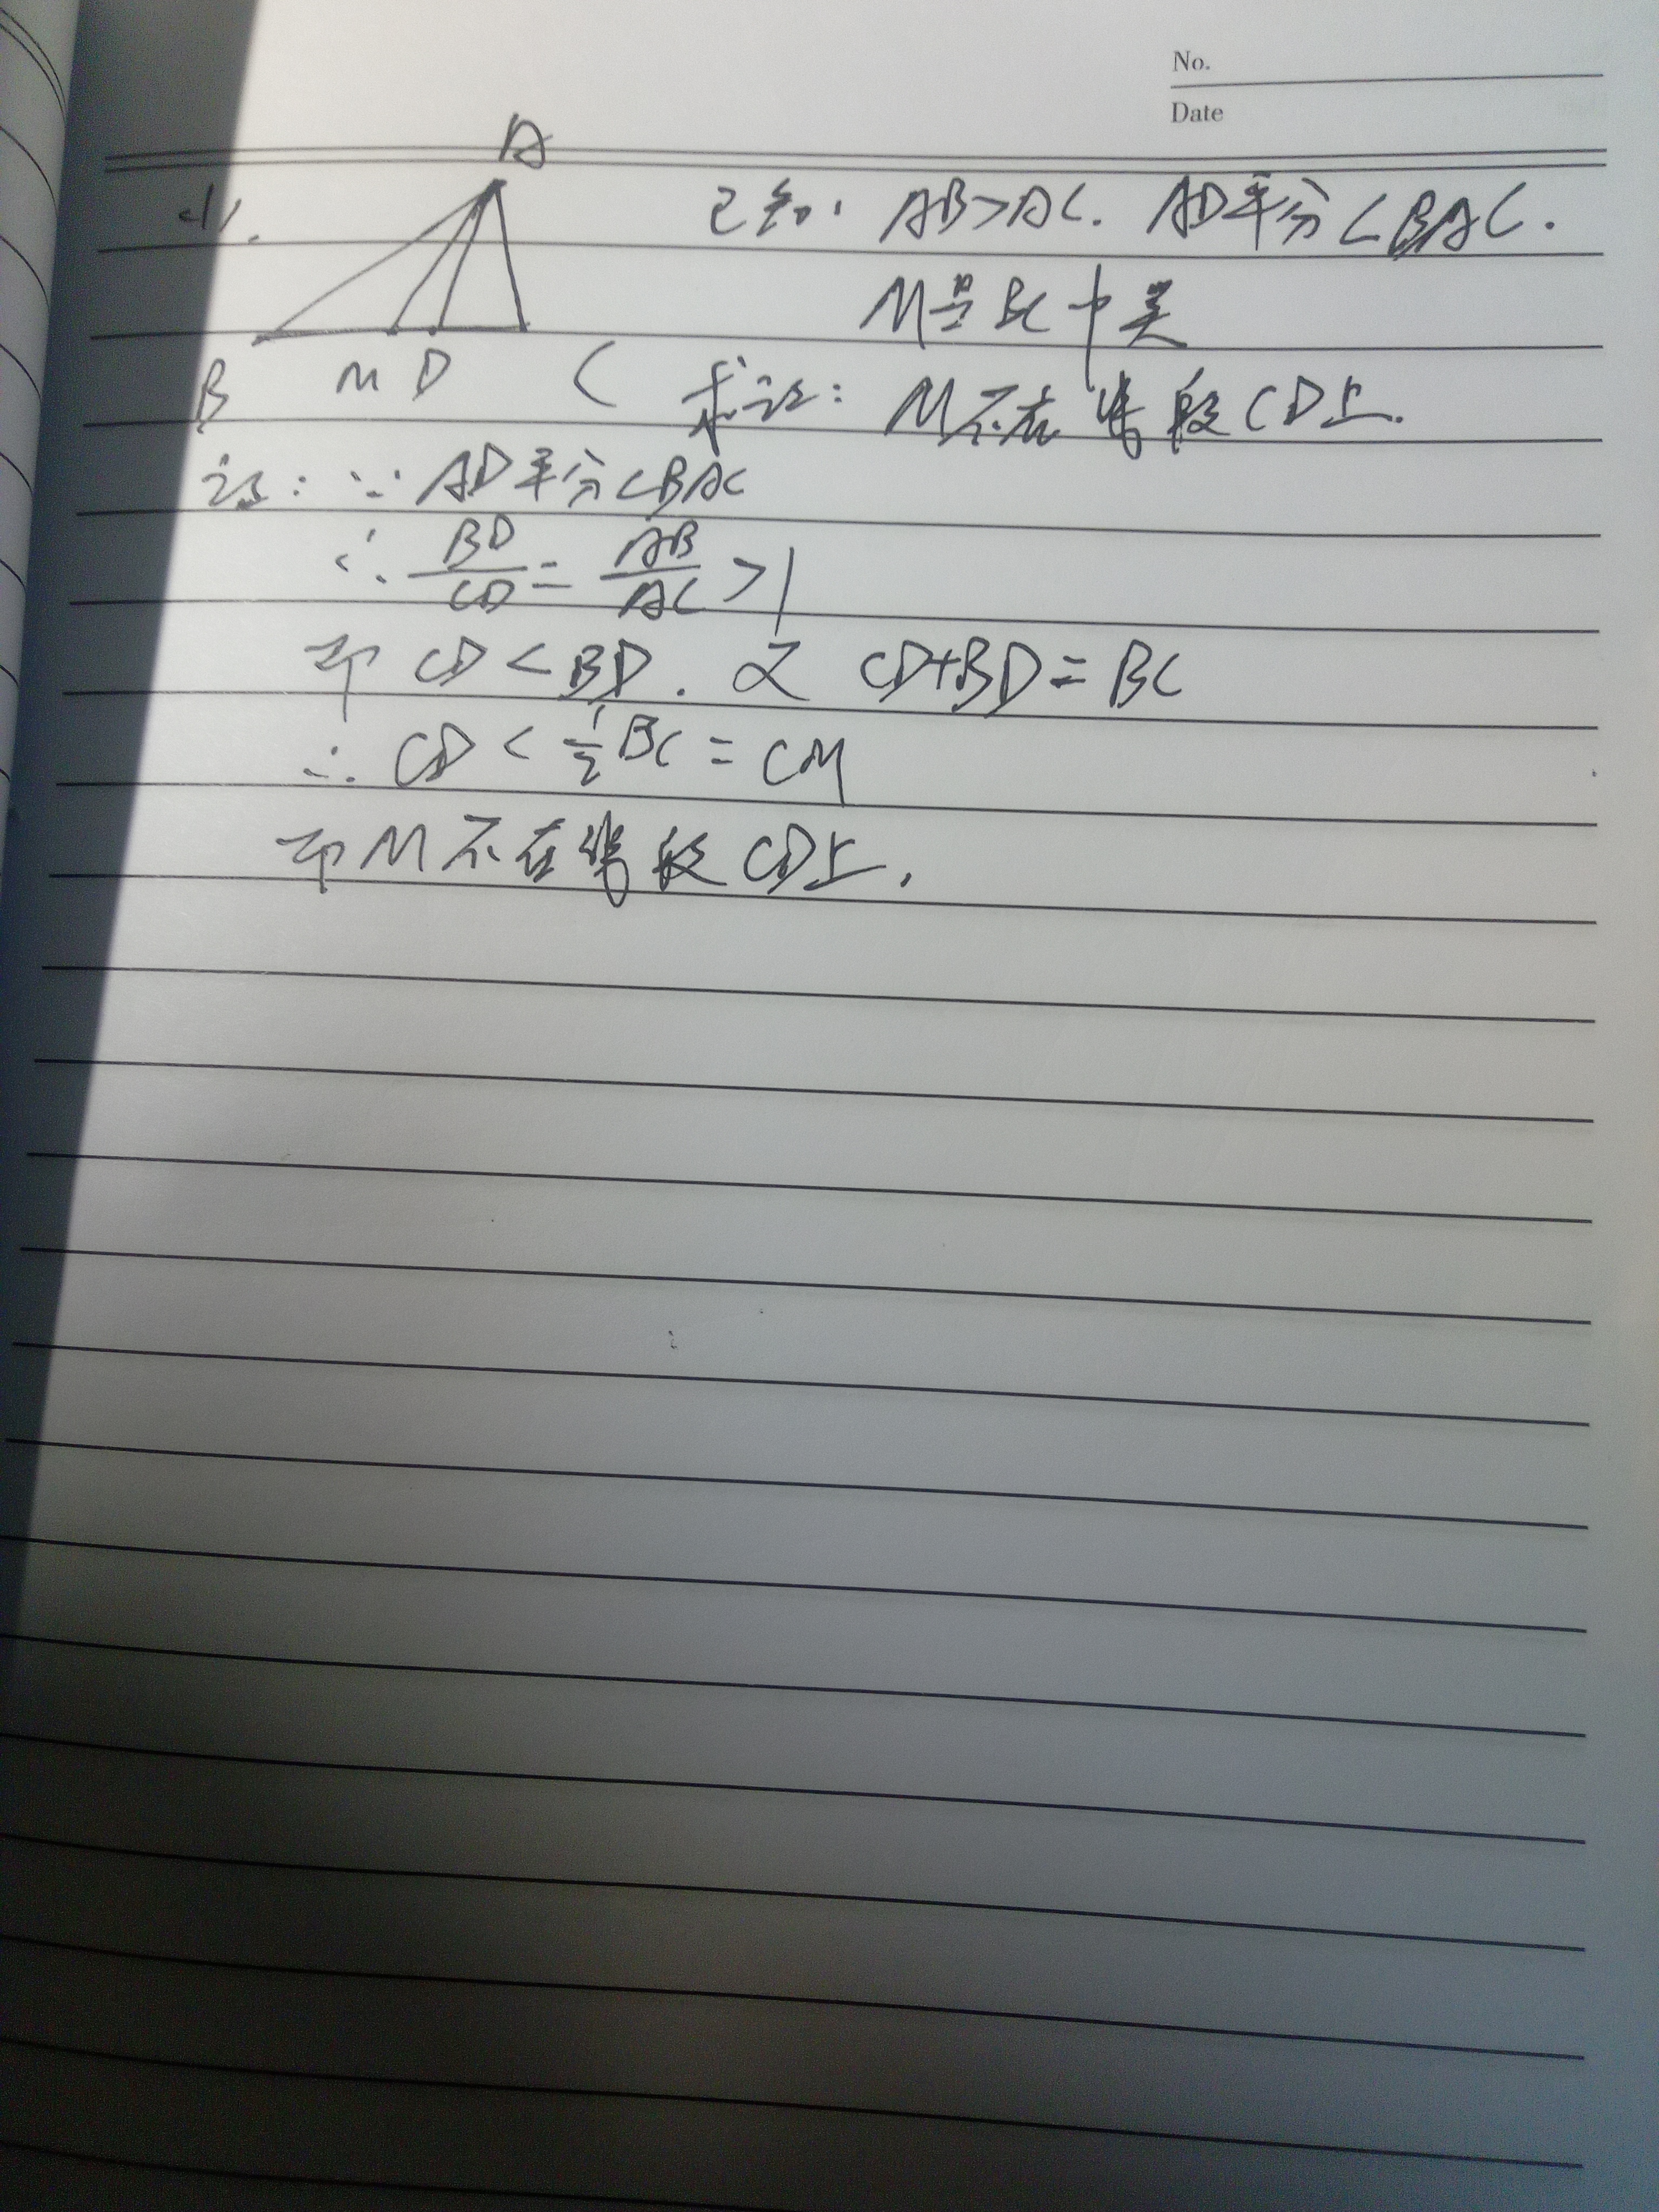 No.
Date
A
41.
已知: AB>AC. AD平分∠BAC.
M是BC中点
B M D C
求证: M不在线段CD上.
证: ∵ AD平分∠BAC
∴ BD/CD = AB/AC >1
即 CD<BD. 又 CD+BD=BC
∴ CD < 1/2 BC = CM
即M不在线段CD上.